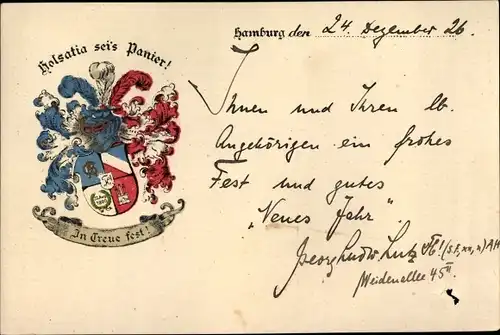 Holsatia sei's Panier!
Hamburg den 24. Dezember 26.
Ihnen und Ihren lb.
Angehörigen ein frohes
Fest und gutes
"Neues Jahr".
In Treue fest!
Georg Ludw. Lutz
AH
Weidenallee 45 II